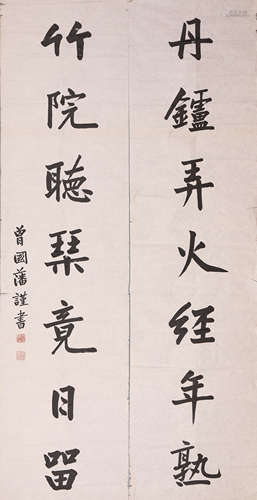 丹鑪弄火經年熟
竹院聽琹竟日留
曾國藩謹書